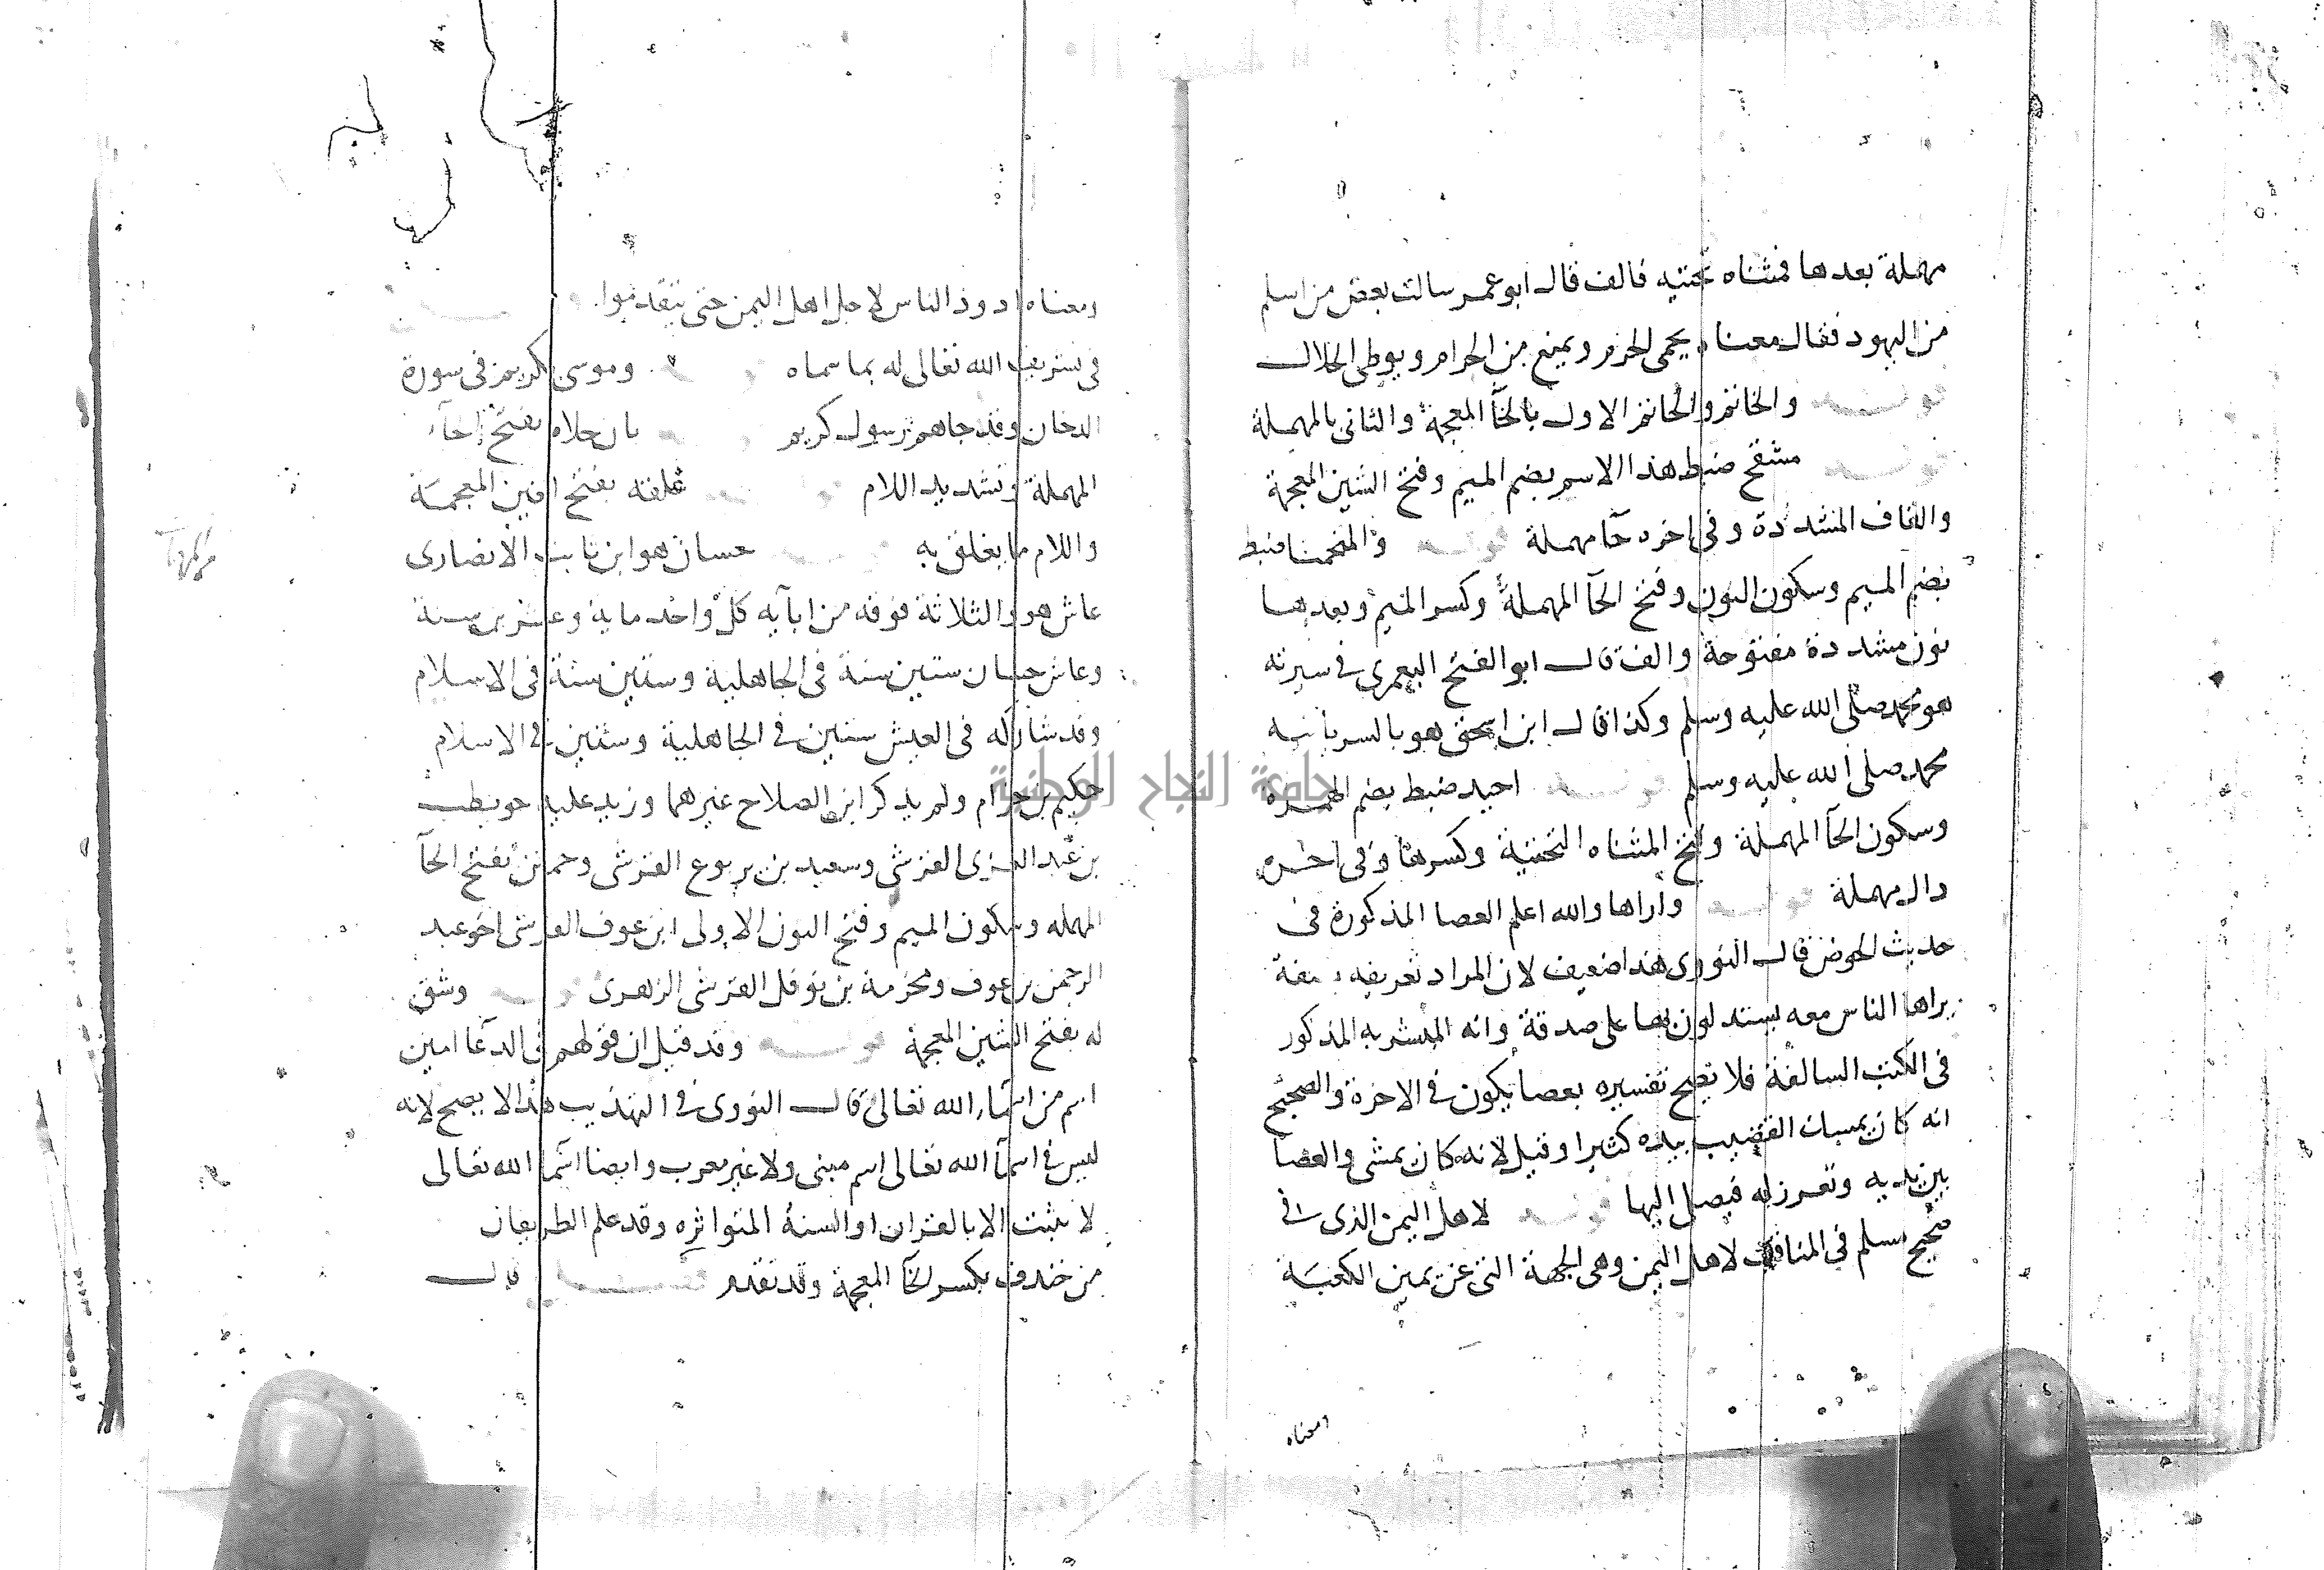 مهملة بعدها فمثناه تحتيه فالف قال ابو عمر سالت بعض من اسلم
من اليهود فقال معناه يحمى الحرم ويمنع من الحرام ويوطى الحلال
قوله والخاتم والحاتم الاول بالخآ المعجمة والثانى بالمهملة
قوله مشقح ضبط هذا الاسم بضم الميم وفتح الشين المعجمة
والقاف المشددة وفى اخره حآ مهملة قوله والمنحمنا ضبط
بضم الميم وسكون النون وفتح الحآ المهملة وكسر الميم وبعدها
نون مشددة مفتوحة والف قال ابو الفتح اليعمرى فى سيرته
هو محمد صلى الله عليه وسلم وكذا قال ابن اسحق هو بالسريانيه
محمد صلى الله عليه وسلم قوله احيد ضبط بضم الهمزة
وسكون الحآ المهملة وفتح المثناه التحتية وكسرها وفى اخره
دال مهملة قوله واراها والله اعلم العصا المذكورة فى
حديث الحوض قال النووى هذا ضعيف لان المراد تعريفه بصفة
يراها الناس معه يستدلون بها على صدقة وانه المبشر به المذكور
فى الكتب السالفة فلا يصح تفسيره بعصا يكون فى الاخرة والصحيح
انه كان يمسك القضيب بيده كثيرا وقيل لانه كان يمشى والعصا
بين يديه وتغرز له فيصل اليها قوله لاهل اليمن الذى فى
صحيح مسلم فى المناقب لاهل اليمن وهى الجهة التى عن يمين الكعبة
ومعناه
ومعناه اذود الناس لاجل اهل اليمن حتى يتقدموا
فى تشريف الله تعالى له بما سماه وموسى كريم فى سورة
الدخان وقد جاهم رسول كريم بان جلاه بفتح الحآ
المهملة وتشديد اللام غلفته بفتح الغين المعجمة
واللام ما يغلق به حسان هو ابن ثابت الانصارى
عاش هو والثلاثة فوقه من ابآيه كل واحد ماية وعشرين سنة
وعاش حسان ستين سنة فى الجاهلية وستين سنة فى الاسلام
وقد شاركه فى العيش ستين فى الجاهلية وستين فى الاسلام
حكيم بن حزام ولم يذكر ابن الصلاح غيرهما وزيد عليه حويطب
بن عبد العزى القرشى وسعيد بن يربوع القرشى وحمنن بفتح الحآ
المهمله وسكون الميم وفتح النون الاولى ابن عوف القرشى اخو عبد
الرحمن بن عوف ومخرمة بن نوفل القرشى الزهرى قوله وشق
له بفتح الشين المعجمة قوله وقد قيل ان قولهم فى الدعآ امين
اسم من اسمآ الله تعالى قال النووى فى التهذيب هذا لا يصح لانه
ليس فى اسمآ الله تعالى اسم مبنى ولا غير معرب وايضا اسمآ الله تعالى
لا تثبت الا بالقران او السنة المتواثره وقد علم الطريقان
من خندف بكسر الخآ المعجمة وقد تقدم قال
جامعة النجاح الوطنية